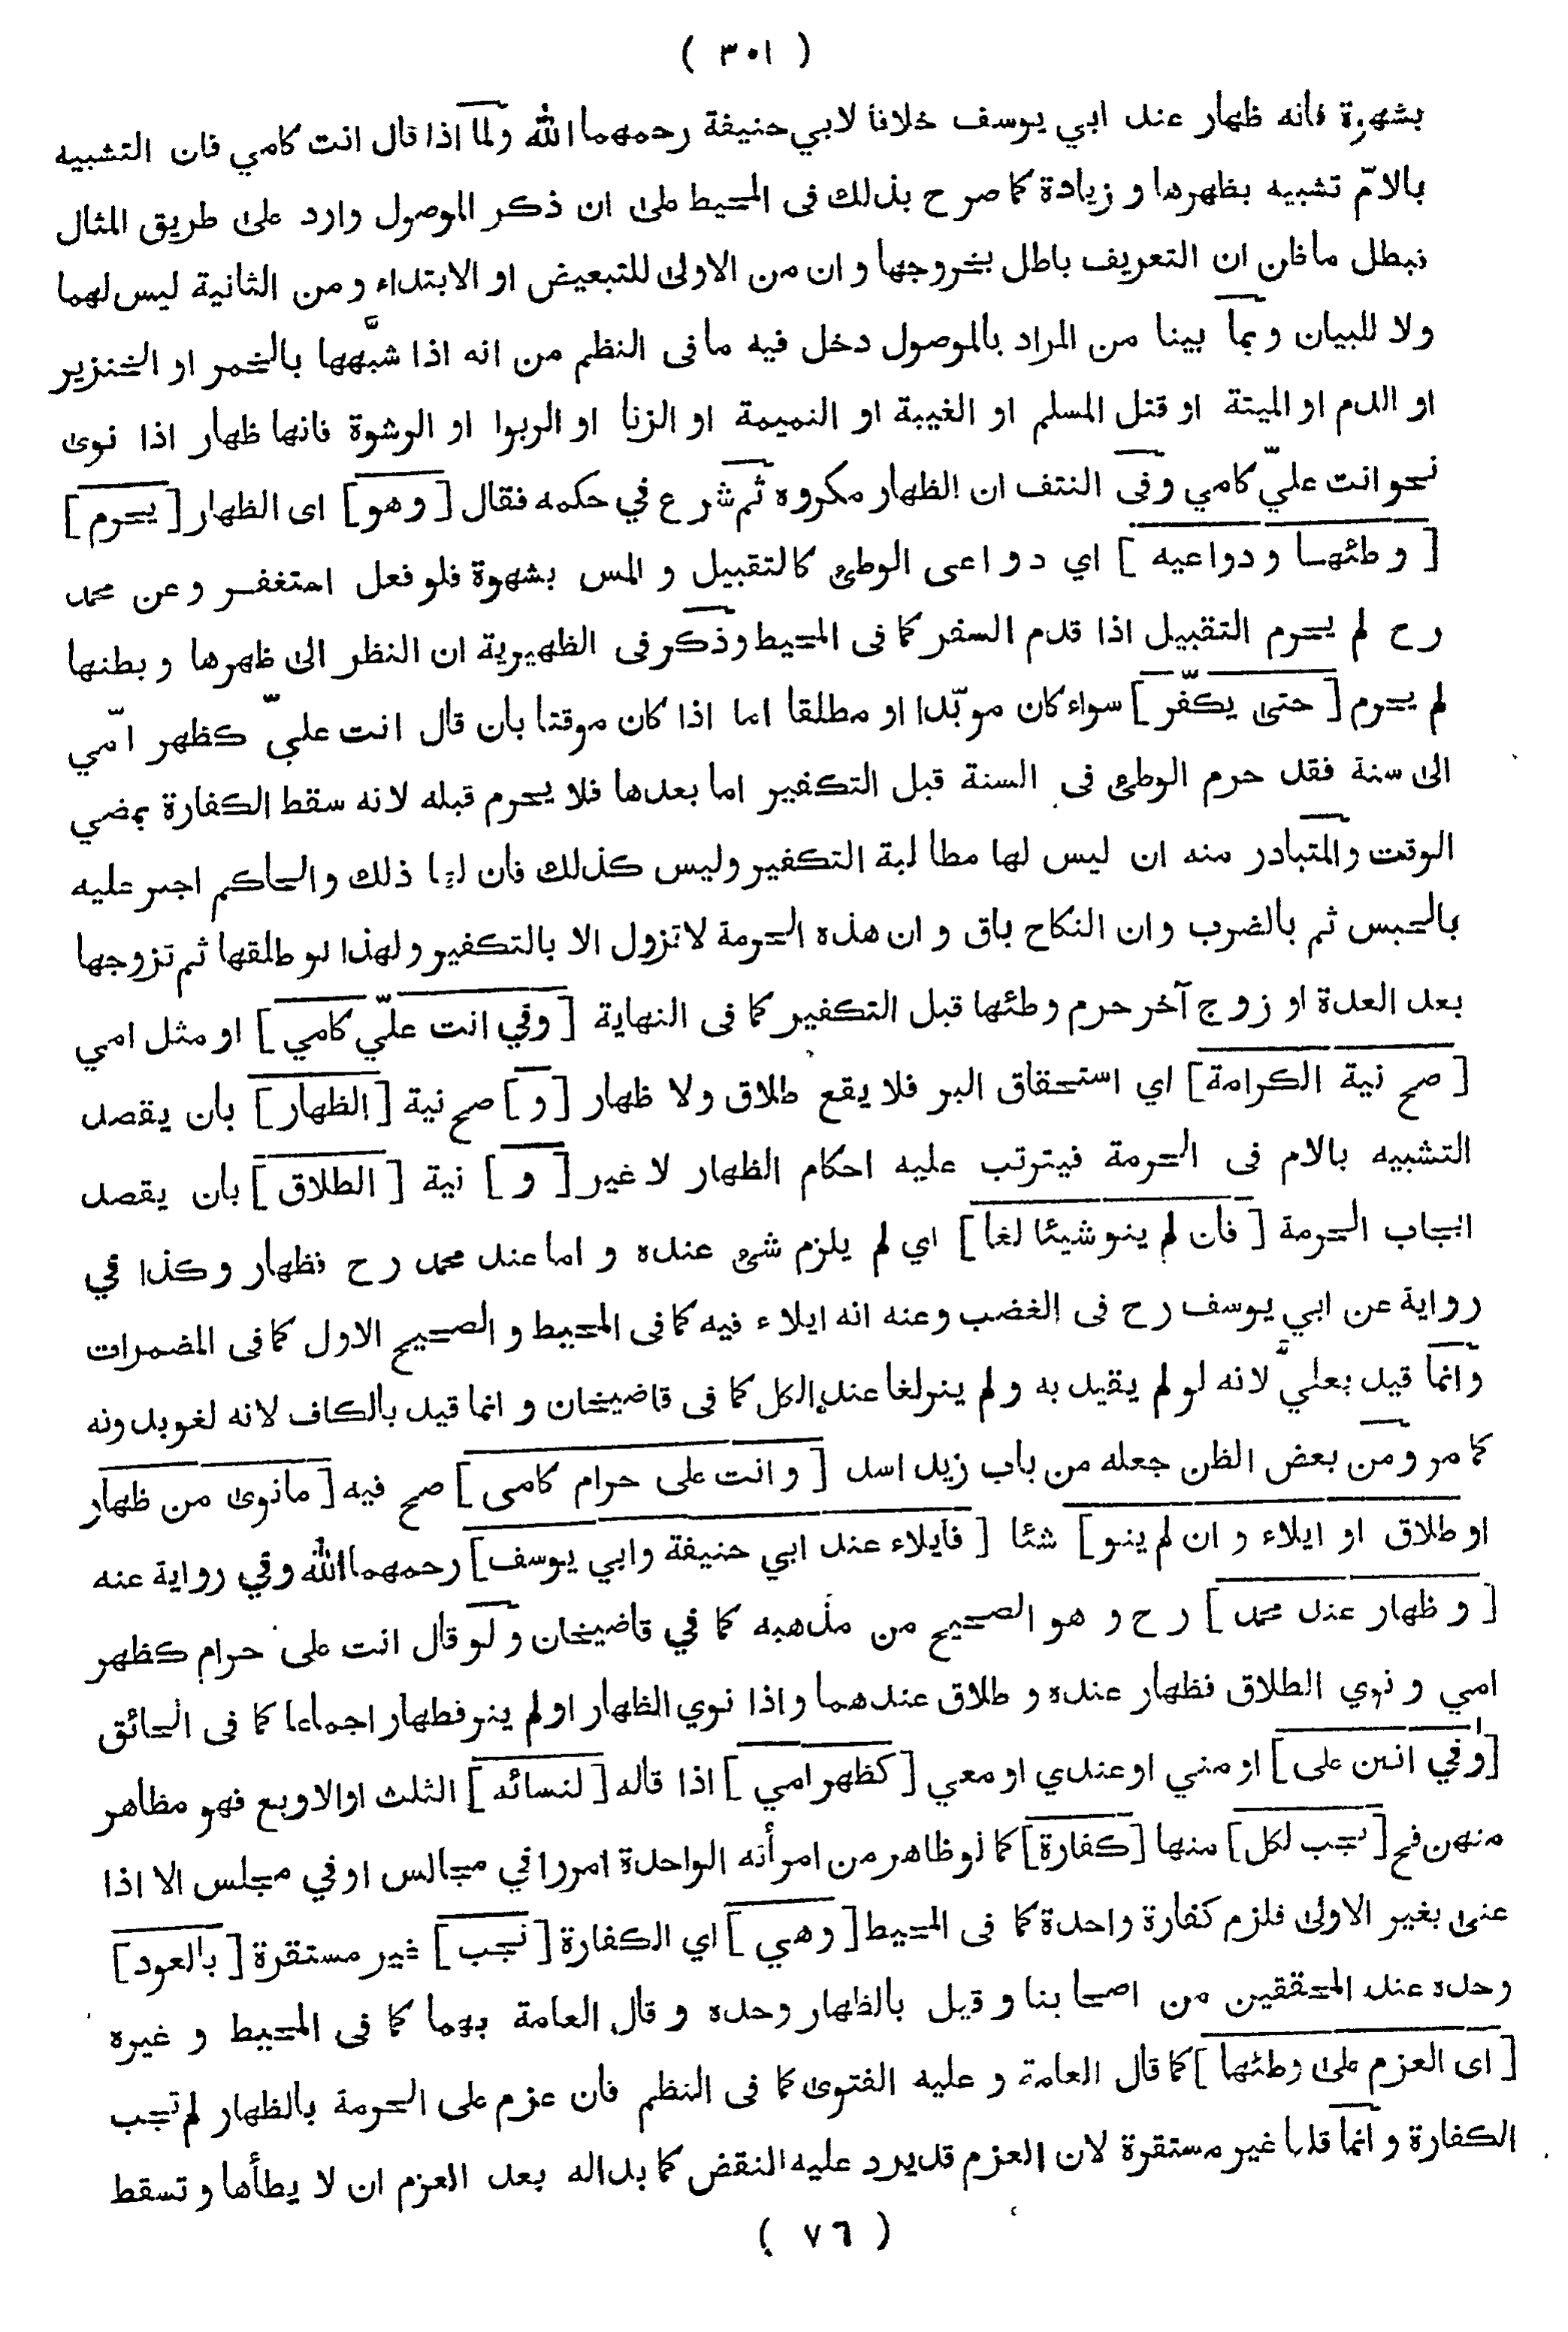 ( ٣٠١ )
بشهوة فانه ظهار عند ابي يوسف خلافا لابي حنيفة رحمهما الله ولما اذا قال انت كامي فان التشبيه
بالامّ تشبيه بظهرها و زيادة كما صرح بذلك فى المحيط على ان ذكر الموصول وارد على طريق المثال
فبطل ماظن ان التعريف باطل بخروجها و ان من الاولى للتبعيض او الابتداء و من الثانية ليس لهما
ولا للبيان و بما بينا من المراد بالموصول دخل فيه مافى النظم من انه اذا شبَّهها بالخمر او الخنزير
او الدم او الميتة او قتل المسلم او الغيبة او النميمة او الزنا او الربوا او الرشوة فانها ظهار اذا نوى
نحو انت عليّ كامي وفى النتف ان الظهار مكروه ثم شرع في حكمه فقال [ وهو ] اى الظهار [ يحرم ]
[ وطئها و دواعيه ] اي دواعى الوطئ كالتقبيل و المس بشهوة فلو فعل استغفر و عن محمد
رح لم يحرم التقبيل اذا قدم السفر كما فى المحيط وذكر فى الظهيرية ان النظر الى ظهرها و بطنها
لم يحرم [ حتى يكفّر ] سواء كان موبّدا او مطلقا اما اذا كان موقتا بان قال انت عليّ كظهر امّي
الى سنة فقد حرم الوطئ فى السنة قبل التكفير اما بعدها فلا يحرم قبله لانه سقط الكفارة بمضي
الوقت والمتبادر منه ان ليس لها مطالبة التكفير وليس كذلك فان لها ذلك والحاكم اجبر عليه
بالحبس ثم بالضرب وان النكاح باق و ان هذه الحرمة لاتزول الا بالتكفير ولهذا لو طلقها ثم تزوجها
بعد العدة او زوج آخر حرم وطئها قبل التكفير كما فى النهاية [ وفي انت عليّ كامي ] او مثل امي
[ صح نية الكرامة ] اي استحقاق البر فلا يقع طلاق ولا ظهار [ و ] صح نية [ الظهار ] بان يقصد
التشبيه بالام فى الحرمة فيترتب عليه احكام الظهار لا غير [ و ] نية [ الطلاق ] بان يقصد
ايجاب الحرمة [ فان لم ينو شيئا لغا ] اي لم يلزم شئ عنده و اما عند محمد رح فظهار وكذا في
رواية عن ابي يوسف رح فى الغضب وعنه انه ايلاء فيه كما فى المحيط و الصحيح الاول كما فى المضمرات
وانما قيد بعليَّ لانه لو لم يقيد به و لم ينو لغا عند الكل كما فى قاضيخان و انما قيد بالكاف لانه لغو بدونه
كما مر ومن بعض الظن جعله من باب زيد اسد [ و انت على حرام كامى ] صح فيه [ مانوى من ظهار
او طلاق او ايلاء و ان لم ينو ] شئا [ فايلاء عند ابي حنيفة وابي يوسف ] رحمهما الله وفي رواية عنه
[ و ظهار عند محمد ] رح و هو الصحيح من مذهبه كما في قاضيخان و لو قال انت على حرام كظهر
امي و نوي الطلاق فظهار عنده و طلاق عندهما واذا نوي الظهار اولم ينو فظهار اجماعا كما فى الحائق
[ وفي انتن على ] او مني او عندي او معي [ كظهر امي ] اذا قاله [ لنسائه ] الثلث اوالاربع فهو مظاهر
منهن فح [ تجب لكل ] منها [ كفارة ] كما لو ظاهر من امرأته الواحدة امررا في مجالس او في مجلس الا اذا
عنى بغير الاولى فلزم كفارة واحدة كما فى المحيط [ وهي ] اي الكفارة [ تجب ] غير مستقرة [ بالعود ]
وحده عند المحققين من اصحابنا و قيل بالظهار وحده و قال العامة بهما كما فى المحيط و غيره
[ اى العزم على وطئها ] كما قال العامة و عليه الفتوى كما فى النظم فان عزم على الحرمة بالظهار لم تجب
الكفارة و انما قلنا غير مستقرة لان العزم قد يرد عليه النقض كما بداله بعد العزم ان لا يطأها و تسقط
( ٧٦ )